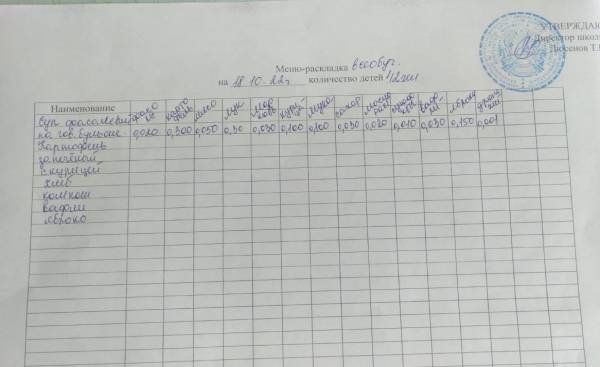 УТВЕРЖДАЮ
Директор школы
Дюсенов Т.
Меню-раскладка всеобуч.
на 18.10.22г количество детей 42
Наименование фасоль картофель мясо лук морковь курица мука сахар
Суп фасолевый
на гов. бульоне 0,020 0,300 0,050 0,30 0,030 0,100 0,100 0,030 0,020 0,010 0,030 0,150 0,001
Картофель
запечёной
с курицей
хлеб
компот
вафли
яблоко